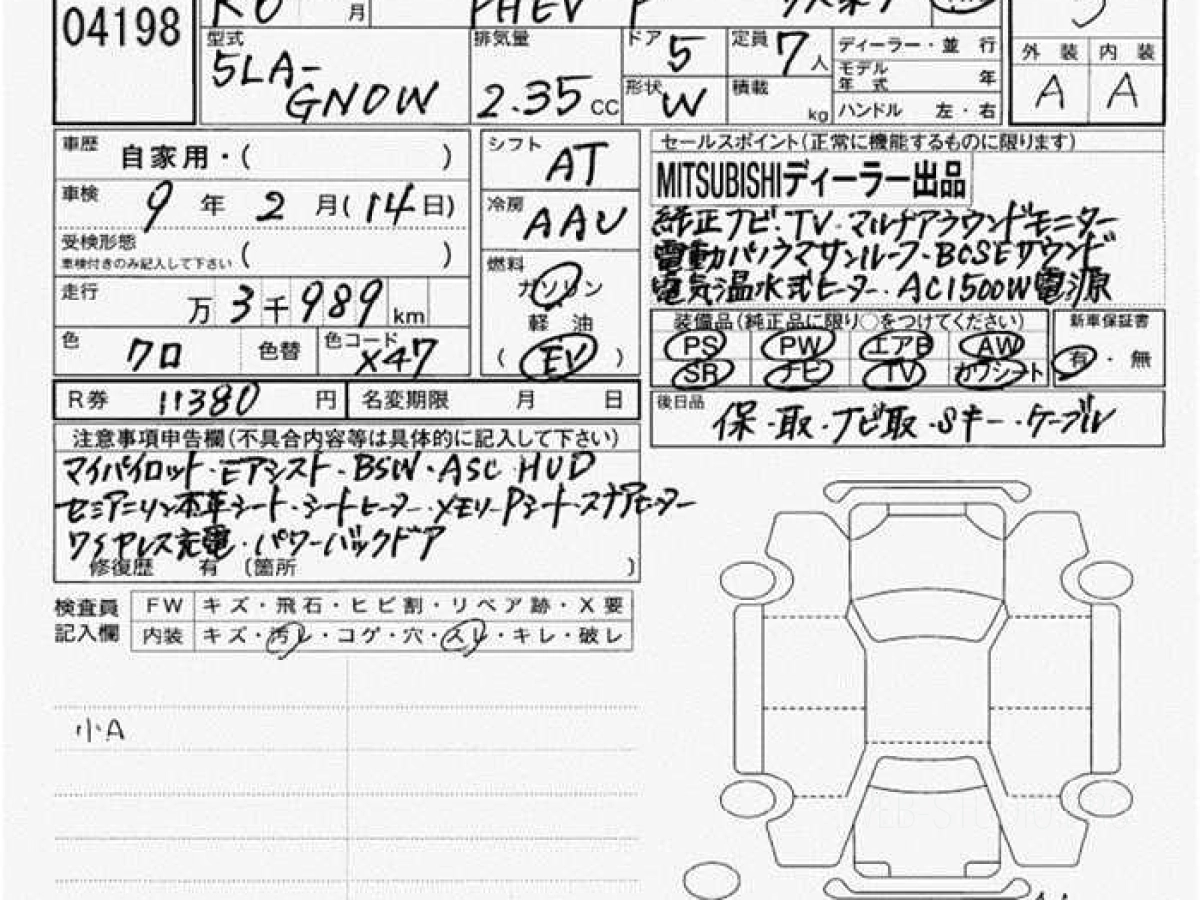 04198
R6 月 PHEV P
5
型式 5LA-GN0W
排気量 2.35 CC
ドア 5
定員 7 人
形状 W
積載 kg
ディーラー・並 行
モデル年式 年
ハンドル 左・右
外 装 内 装
A A
車歴 自家用・( )
車検 9 年 2 月(14日)
受検形態 ( )
車検付きのみ記入して下さい
走行 万 3 千 989 km
色 クロ 色替 色コード X47
シフト AT
冷房 AAC
燃料
ガソリン
軽 油
( EV )
セールスポイント(正常に機能するものに限ります)
MITSUBISHIディーラー出品
純正ナビ・TV・マルチアラウンドモニター
電動パノラマサンルーフ・BOSEサウンド
電気温水式ヒーター・AC1500W電源
装備品(純正品に限り○をつけてください)
PS PW エアB AW
SR ナビ TV カワシート
新車保証書
有・無
R券 11380 円 名変期限 月 日
後日品 保・取・ナビ取・Sキー・ケーブル
注意事項申告欄(不具合内容等は具体的に記入して下さい)
マイパイロット・Eアシスト・BSW・ASC HUD
セミアニリン本革シート・シートヒーター・メモリーPシート・ステアヒーター
ワイヤレス充電・パワーバックドア
修復歴 有 〔箇所 〕
検査員記入欄
FW キズ・飛石・ヒビ割・リペア跡・X要
内装 キズ・汚レ・コゲ・穴・スレ・キレ・破レ
小A